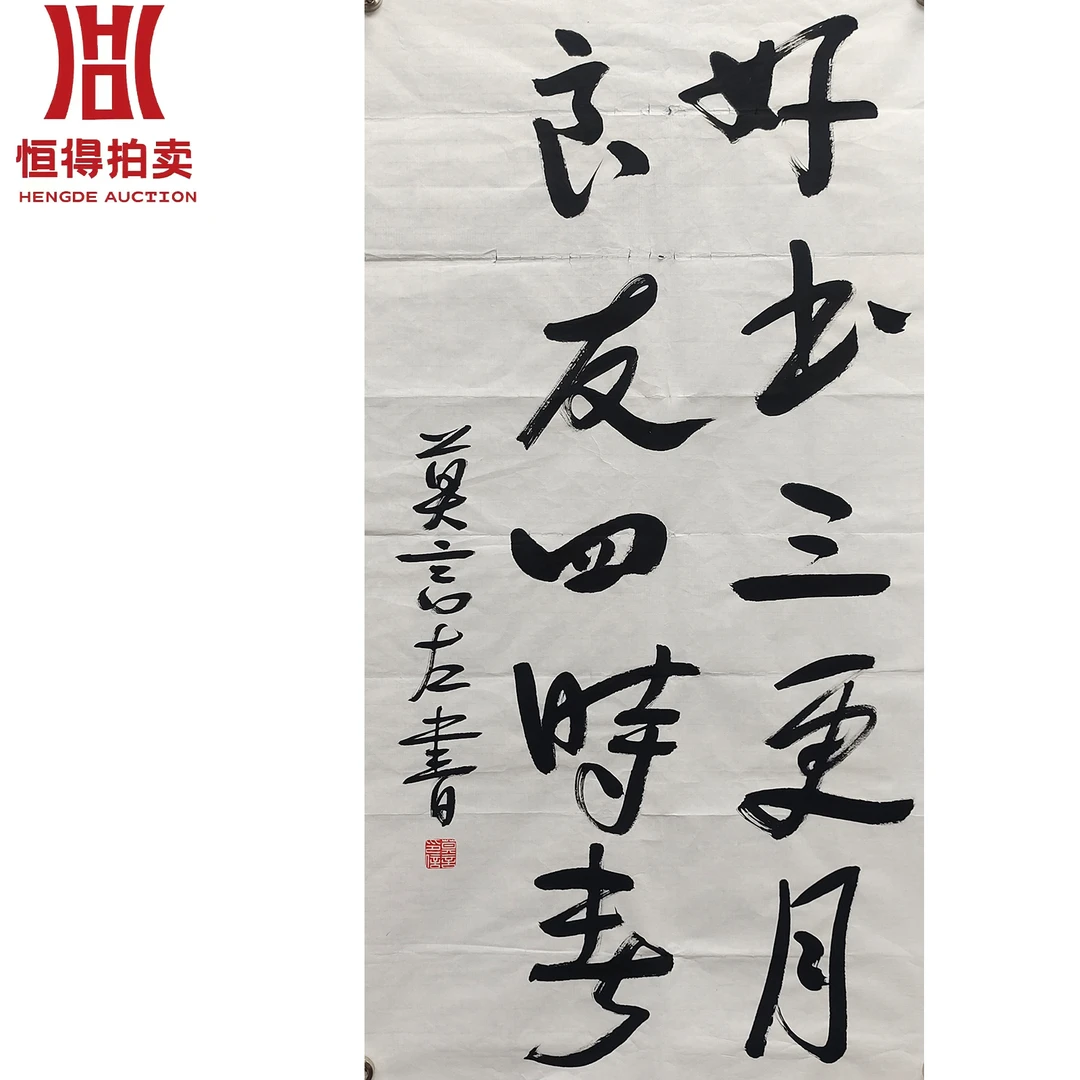 恒得拍卖
HENGDE AUCTION
好书三更月
良友四時春
莫言左書